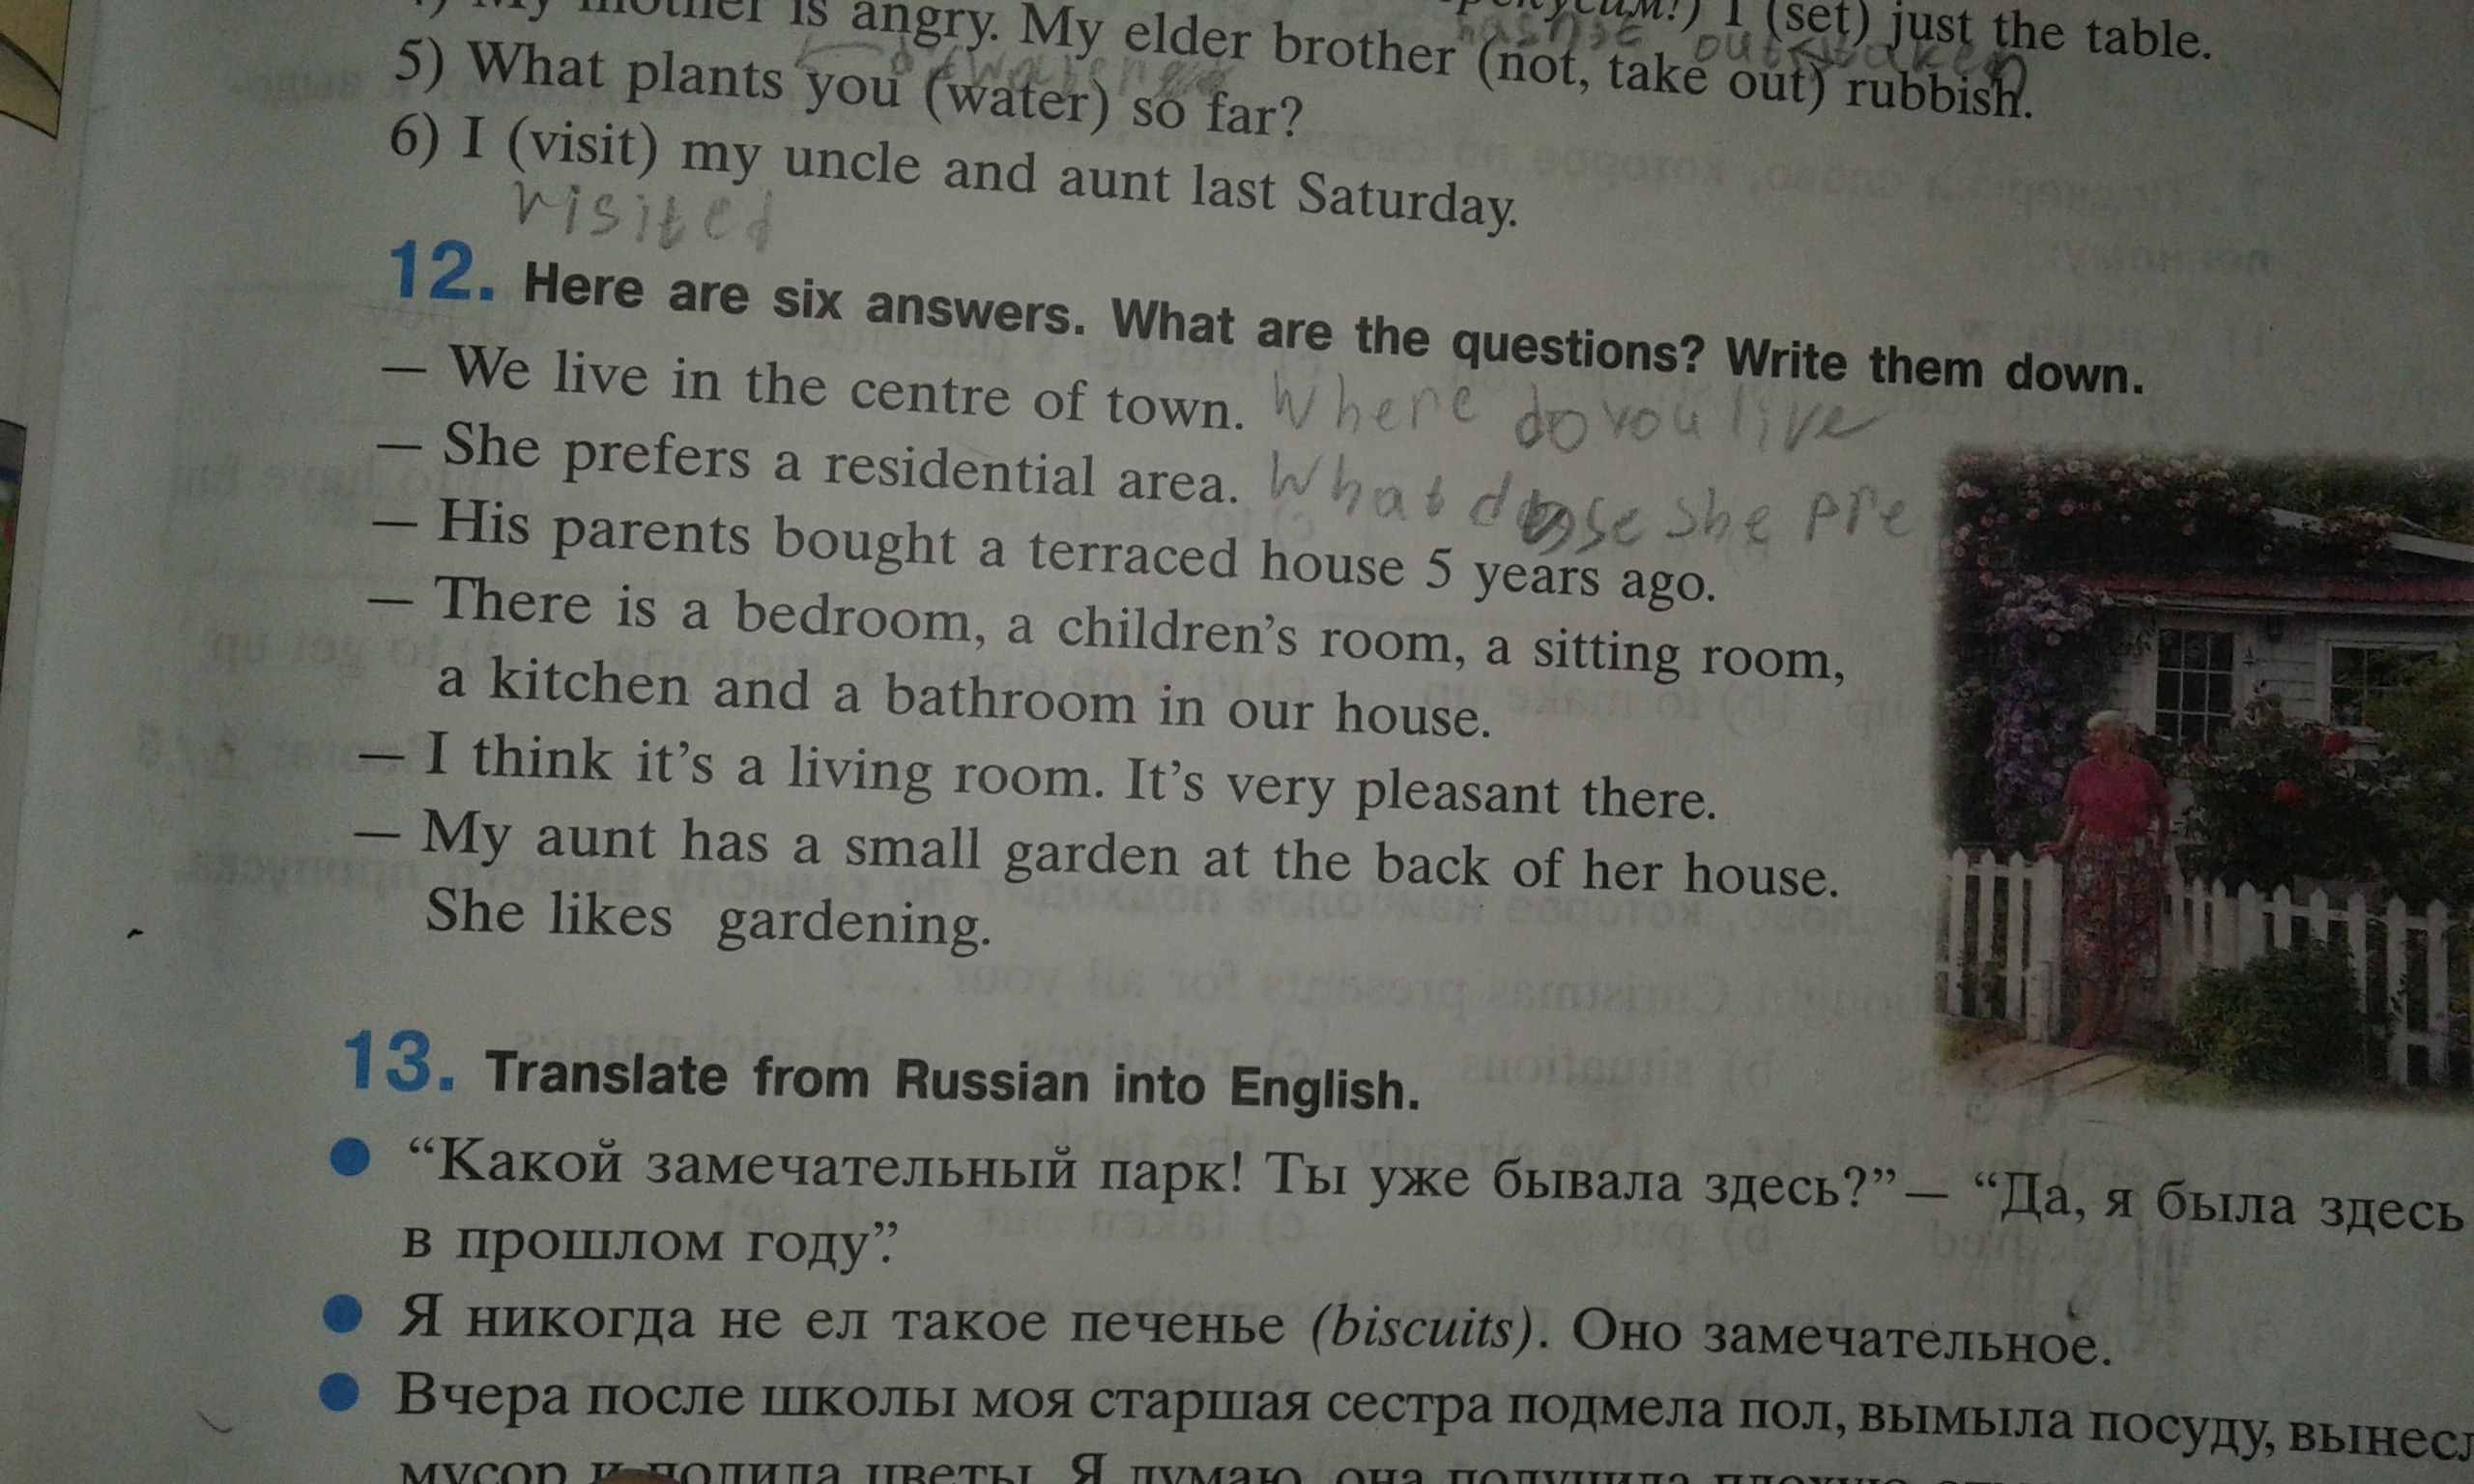 My mother is angry. My elder brother (not, take out) rubbish.
I (set) just the table.
5) What plants you (water) so far?
6) I (visit) my uncle and aunt last Saturday.
visited
12. Here are six answers. What are the questions? Write them down.
— We live in the centre of town. Where do you live
— She prefers a residential area. What she pre
— His parents bought a terraced house 5 years ago.
— There is a bedroom, a children's room, a sitting room,
a kitchen and a bathroom in our house.
— I think it's a living room. It's very pleasant there.
— My aunt has a small garden at the back of her house.
She likes gardening.
13. Translate from Russian into English.
● “Какой замечательный парк! Ты уже бывала здесь?”— “Да, я была здесь
в прошлом году”.
● Я никогда не ел такое печенье (biscuits). Оно замечательное.
● Вчера после школы моя старшая сестра подмела пол, вымыла посуду, вынесл
мусор и полила цветы. Я думаю, она получила